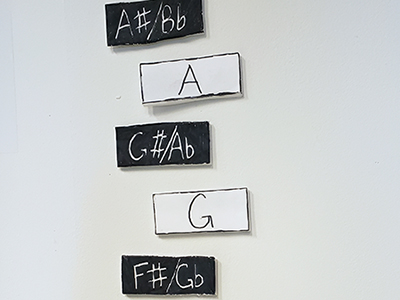 A#/Bb
A
G#/Ab
G
F#/Gb